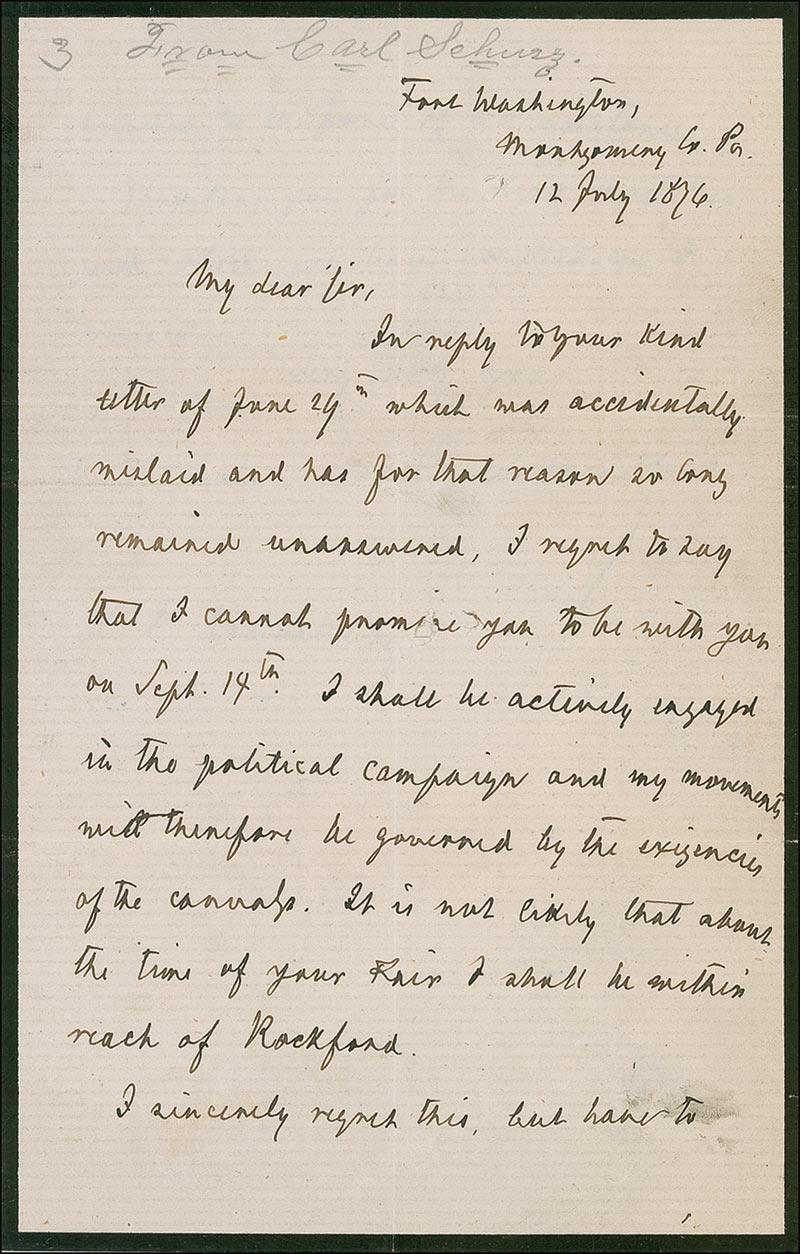 3 From Carl Schurz.
Fort Washington,
Montgomery Co. Pa.
12 July 1876.
My dear Sir,
In reply to your kind
letter of June 29th which was accidentally
mislaid and has for that reason so long
remained unanswered, I regret to say
that I cannot promise you to be with you
on Sept. 14th. I shall be actively engaged
in the political campaign and my movements
will therefore be governed by the exigencies
of the canvass. It is not likely that about
the time of your Fair I shall be within
reach of Rockford.
I sincerely regret this, but have to